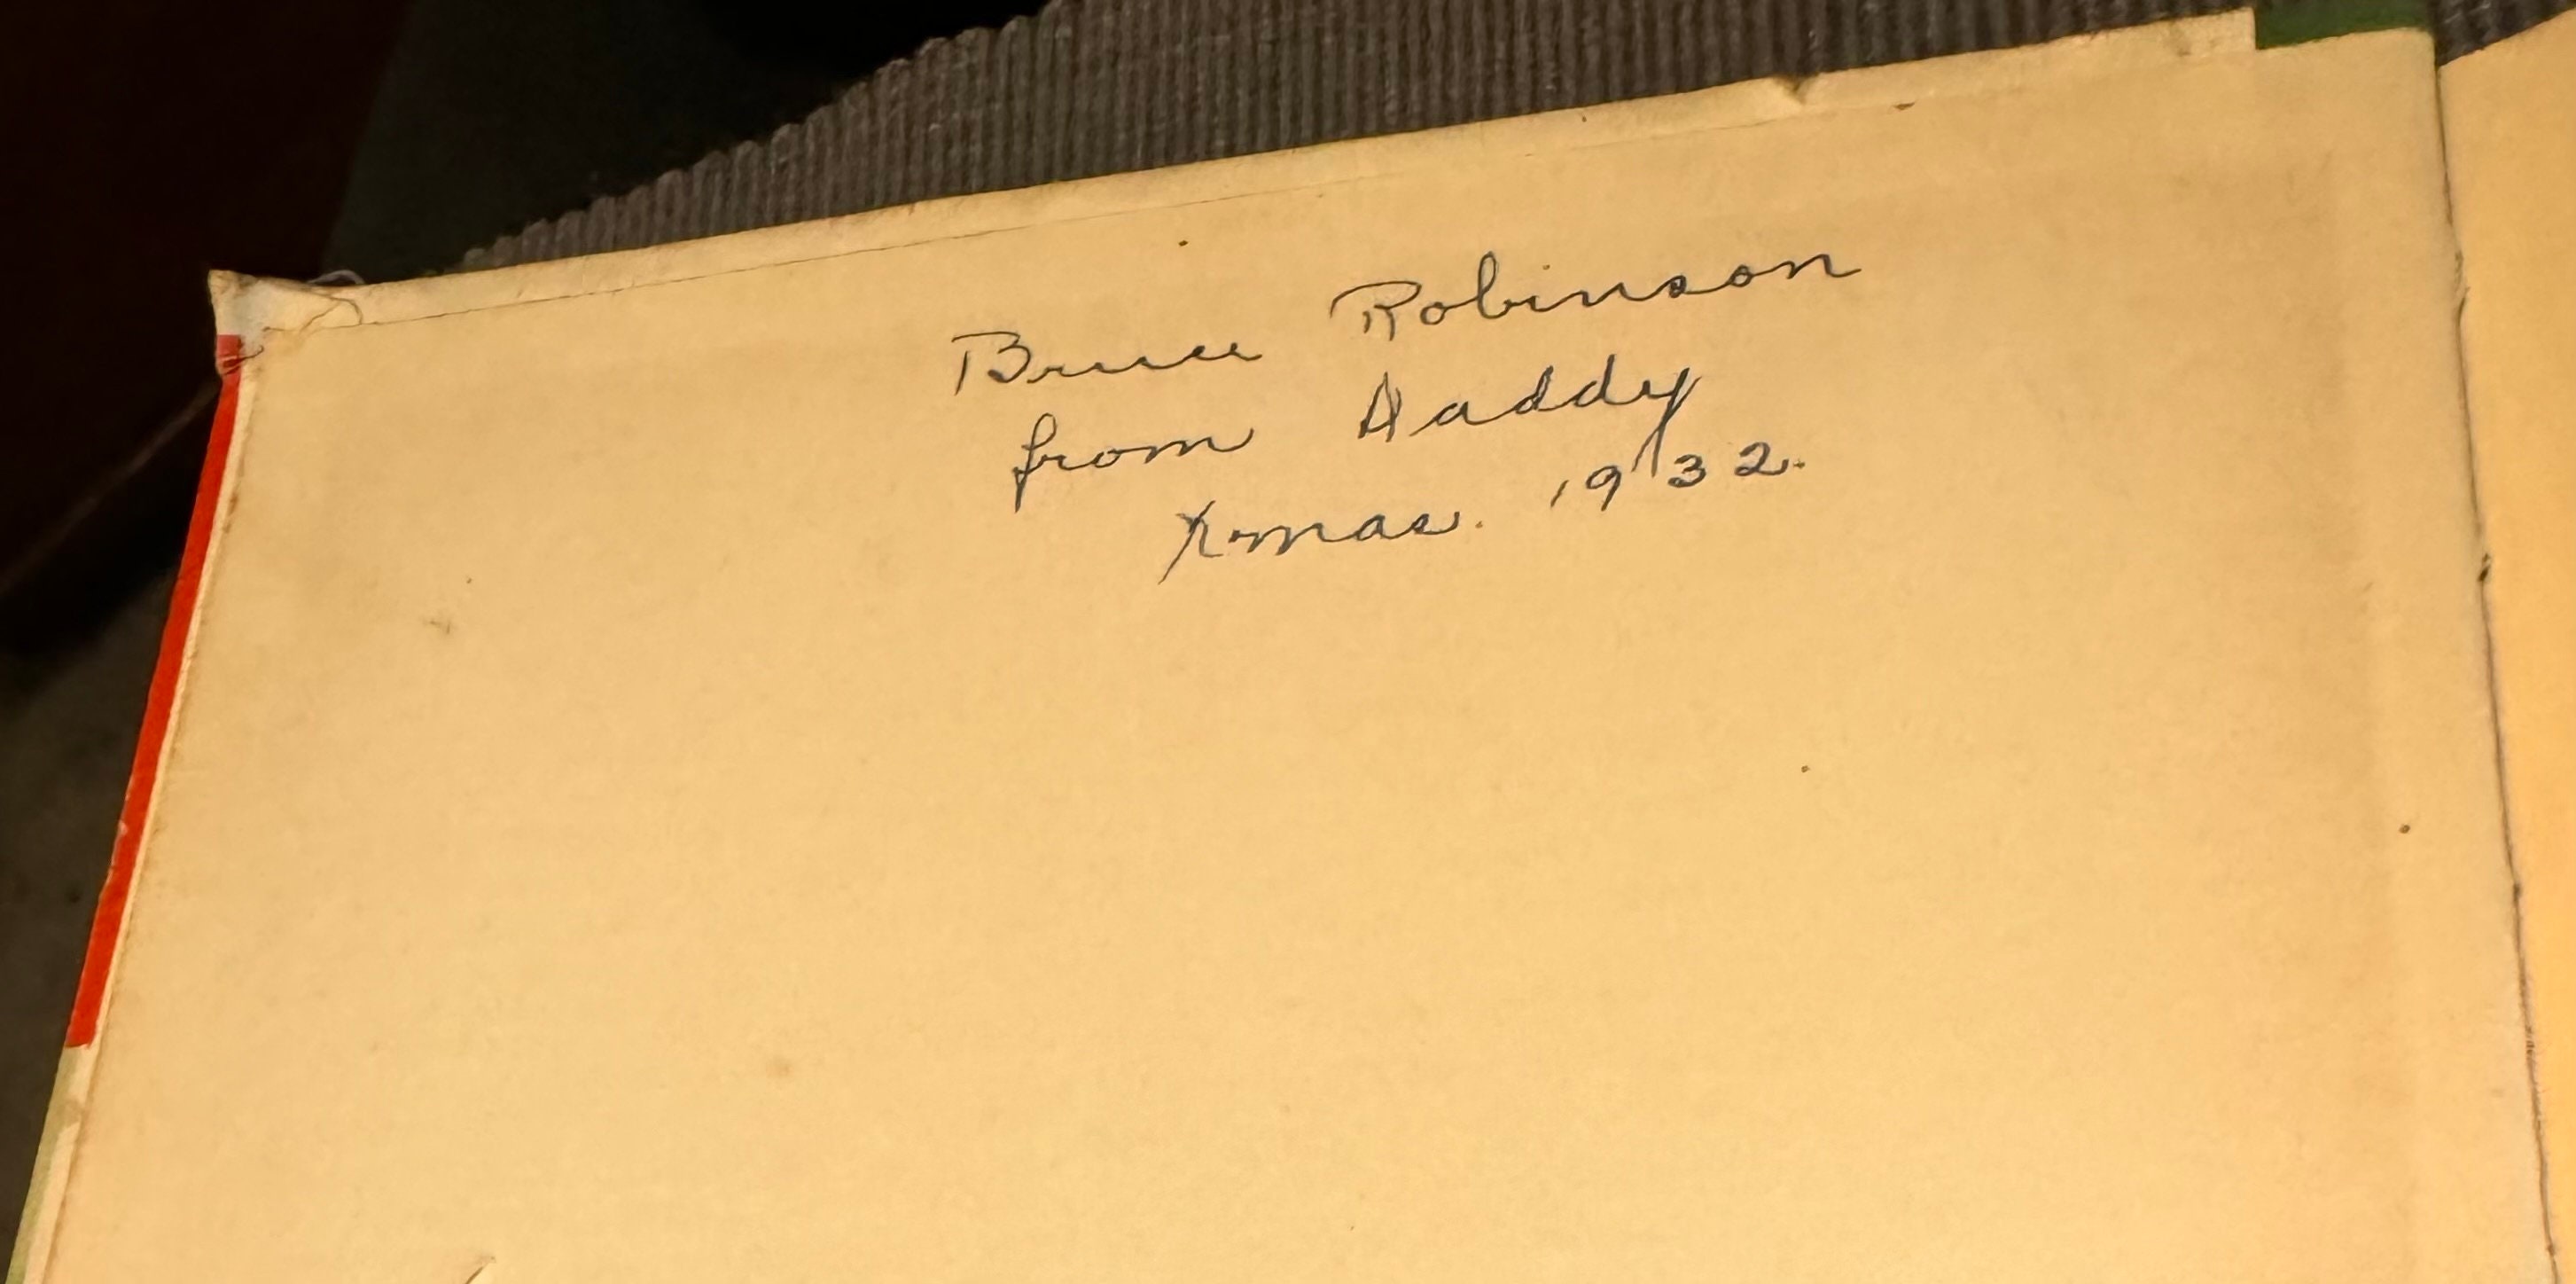 Bruce Robinson
from Daddy
Xmas. 1932.